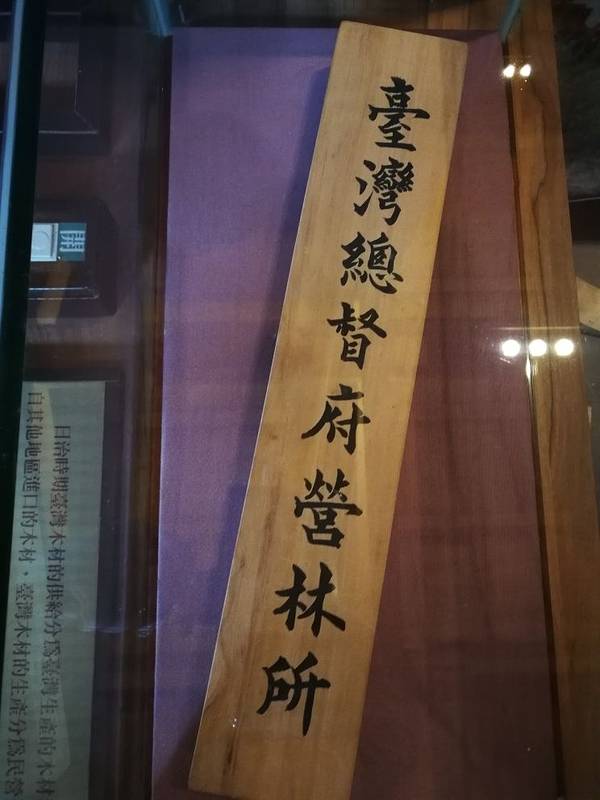 臺灣總督府營林所
日治時期臺灣木材的供給分為臺灣生產的木材
自其他地區進口的木材，臺灣木材的生產分為民營